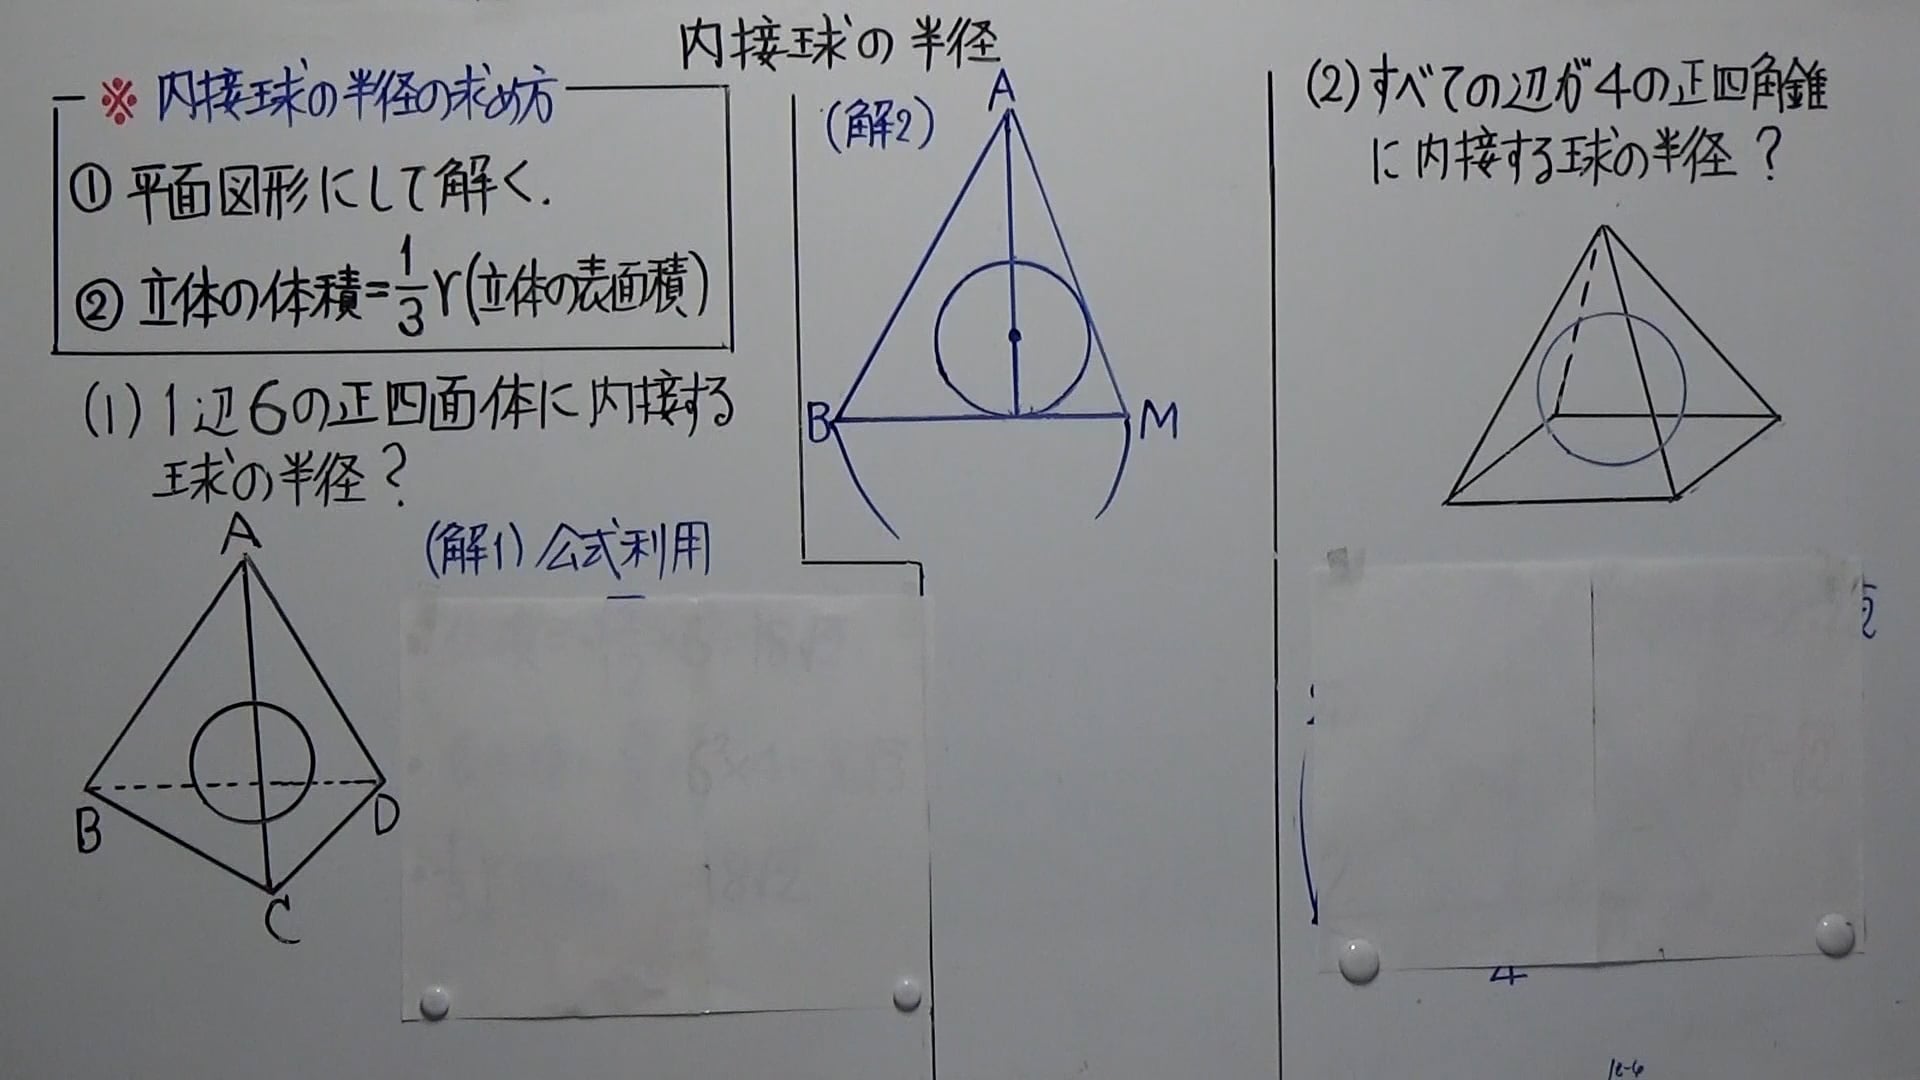 内接球の半径
※ 内接球の半径の求め方
① 平面図形にして解く.
② 立体の体積=1/3 r(立体の表面積)
(1) 1辺6の正四面体に内接する
球の半径?
A
B
C
D
(解1) 公式利用
(解2)
A
B
M
(2) すべての辺が4の正四角錐
に内接する球の半径?
4